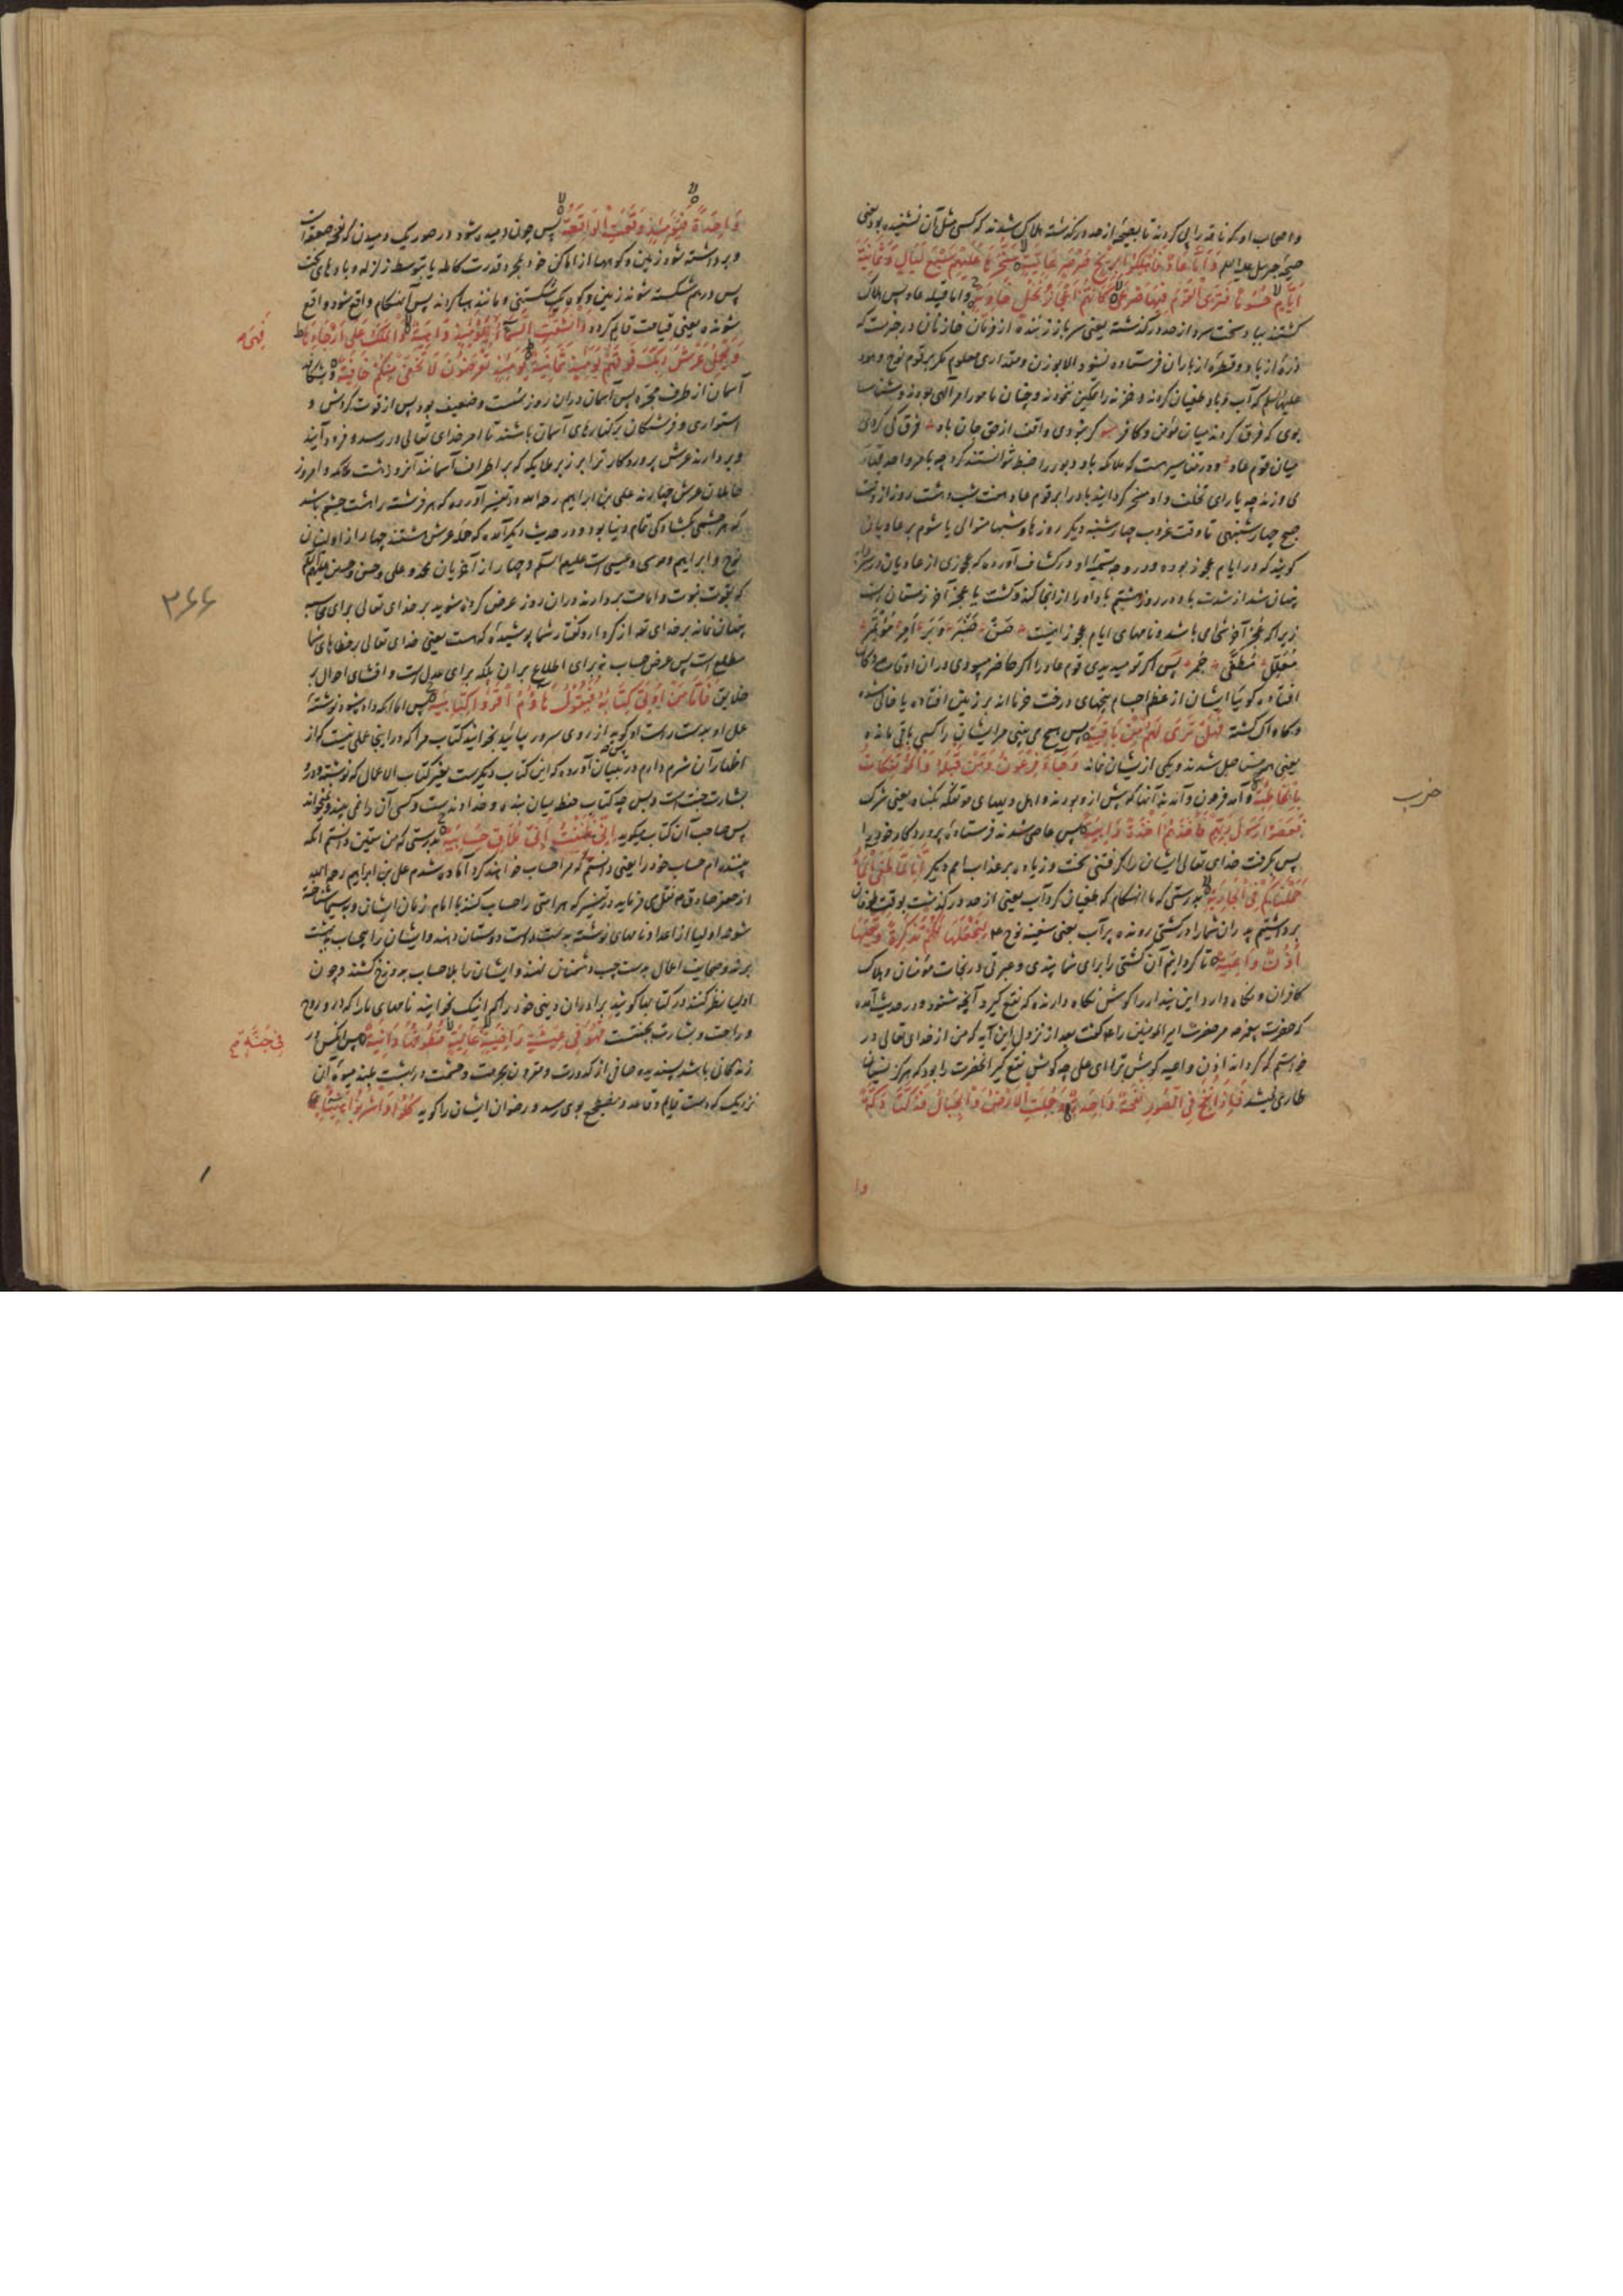 و اصحاب او که ناقه را پی کردند تا بصیحهٔ از حد درگذشته هلاک شدند که کسی مثل آن نشنیده بود یعنی
صیحهٔ جبرئیل علیه السلم وَاَمَّا عَادٌ فَاُهْلِكُوا بِرِیحٍ صَرْصَرٍ عَاتِیَةٍ سَخَّرَهَا عَلَیْهِمْ سَبْعَ لَیَالٍ وَثَمَانِیَةَ
اَیَّامٍ حُسُومًا فَتَرَى الْقَوْمَ فِیهَا صَرْعَى كَاَنَّهُمْ اَعْجَازُ نَخْلٍ خَاوِیَةٍ و اما قبیله عاد پس هلاک
کشتند بباد سخت سرد از حد درگذشته یعنی سرباز زننده از فرمان خازنان در خبرست که
ذرهٔ از باد و قطرهٔ از باران فرستاده نشود الا بوزن و مقداری معلوم مگر بر قوم نوح و هود
علیهما السلم که آب و باد طغیان کردند و خزنه را تمکین ننمودند و چنان مامور امر الهی بودند
بوی که فرق کردند میان مؤمن و کافر گر نبودی واقف از حق جان باد فرق کی کردی
میان قوم عاد و در تفاسیر هست که ملائکه باد دبور را ضبط نتوانستند کرد چه بامر واحد قهار
می وزند چه یارای تخلف و او مسخر گردانید باد را بر قوم عاد هفت شب و هشت روز از وقت
صبح چهارشنبهی تا وقت غروب چهارشنبه دیگر روزها و شبها متوالی یا شوم بر عادیان
کویند که در ایام عجوز بوده و در وجه تسمیهٔ او در کشاف آورده که عجوزی از عادیان در
پنهان شد از شدت باد در روز هشتم باد او را از انجا کند و کشت یا عجز آخر زمستان است
زیرا که عجز آخر شی می باشد و نامهای ایام عجوز اینست صِنّ صِنَّبْر وَبْر آمِر مُؤْتَمِر
مُعَلِّل مُطْفِی جَمْر پس اگر تو می دیدی قوم عاد را اگر حاضر می بودی در ان اوقات
افتاده گویا ایشان از عظم اجسام بیخهای درخت خرمااند بر زمین افتاده یا خالی شده
و کاواک گشته فَهَلْ تَرَى لَهُمْ مِنْ بَاقِیَةٍ پس هیچ می بینی مر ایشان را کسی باقی مانده
یعنی همه مستاصل شدند و یکی از یشان نماند وَجَاءَ فِرْعَوْنُ وَمَنْ قَبْلَهُ وَالْمُؤْتَفِكَاتُ
بِالْخَاطِئَةِ و آمد فرعون و آمدند آنها که پیش از و بودند و اهل دیهای موتفکه بگناه یعنی شرک
فَعَصَوْا رَسُولَ رَبِّهِمْ فَاَخَذَهُمْ اَخْذَةً رَابِیَةً پس عاصی شدند فرستادهٔ پروردکار خود را
پس بگرفت خدای تعالی ایشان را گرفتنی سخت و زیاده بر عذاب امم دیگر اِنَّا لَمَّا طَغَى الْمَاءُ
حَمَلْنَاكُمْ فِی الْجَارِیَةِ بدرستی که ما انهنکام که طغیان کرد آب یعنی از حد درگذشت بوقت طوفان
برداشتیم پدران شما را در کشتی رونده بر آب یعنی سفینه نوح ع لِنَجْعَلَهَا لَكُمْ تَذْكِرَةً وَتَعِیَهَا
اُذُنٌ وَاعِیَةٌ تا گردانیم آن کشتی را برای شما پندی و عبرتی در نجات مؤمنان و هلاک
کافران و نگاه دارد این پند را گوش نگاه دارنده که نفع گیرد آنچه شنود و در حدیث آمده
که حضرت پیغمبر مر حضرت امیر المومنین را ع گفت بعد از نزول این آیه که من از خدای تعالی در
خواستم که گرداند اذن واعیه گوش ترا ای علی چه گوش نفع گیر آنحضرت را بود که هرگز نسیان
طاری نمیشد فَاِذَا نُفِخَ فِی الصُّورِ نَفْخَةٌ وَاحِدَةٌ وَحُمِلَتِ الْاَرْضُ وَالْجِبَالُ فَدُكَّتَا دَكَّةً
وا
حرب
وَاحِدَةً فَیَوْمَئِذٍ وَقَعَتِ الْوَاقِعَةُ پس چون دمیده شود در صور یک دمیدن که نفخهٔ صعق است
و برداشته شود زمین و کوهها از اماکن خود بمجرد قدرت کامله یا بتوسط زلزله و بادهای سخت
پس درهم شکسته شوند زمین و کوه یک شکستنی و مانند هبا گردند پس آنهنکام واقع شود واقع
شونده یعنی قیامت قایم گردد وَانْشَقَّتِ السَّمَاءُ فَهِیَ یَوْمَئِذٍ وَاهِیَةٌ وَالْمَلَكُ عَلَى اَرْجَائِهَا
فَهِیَ
وَیَحْمِلُ عَرْشَ رَبِّكَ فَوْقَهُمْ یَوْمَئِذٍ ثَمَانِیَةٌ یَوْمَئِذٍ تُعْرَضُونَ لَا تَخْفَى مِنْكُمْ خَافِیَةٌ و بشکافد
آسمان از طرف مجره پس آسمان در ان روز سست و ضعیف بود پس از قوت گردش و
استواری و فرشتگان بر کنارهای آسمان باشند تا امر خدای تعالی در رسد و فرود آیند
و بردارند عرش پروردکار ترا بر زبر ملایکه که بر اطراف آسمانند آنروز هشت ملکه و امروز
حاملان عرش چهارند علی بن ابراهیم رحه الله در تفسیر آورده که هر فرشته را هشت چشم باشد
که هر چشمی بکشادگی تمام دنیا بود و در حدیث دیگر آمده که حملهٔ عرش هشتند چهار از اولینان
نوح و ابراهیم و موسی و عیسی است علیهم السلم و چهار از آخریان محمد و علی و حسن و حسین علیهم السلم
که بقوت نبوت و امامت بردارند در ان روز عرض کرده شوید بر خدای تعالی برای محاسبه
پنهان نماند بر خدای تعه از کردار و گفتار شما پوشیدهٔ که هست یعنی خدای تعالی بر خطاهای شما
مطلع است پس عرض حساب نه برای اطلاع بر آن بلکه برای عدل است و افشای احوال بر
خلایق فَاَمَّا مَنْ اُوتِیَ كِتَابَهُ بِیَمِینِهِ فَیَقُولُ هَاؤُمُ اقْرَؤُا كِتَابِیَهْ پس اما آنکه داده شود نوشتهٔ
عمل او بدست راست او گوید از روی سرور بیائید بخوانید کتاب مرا که در اینجا عملی نیست که از
اظهار آن شرم دارم در تبیان آورده که این کتاب دیگرست بغیر کتاب الاعمال که نوشته درو
بشارت جنت است و بس چه کتاب حفظه میان بنده و خداوندست و کسی آن را نمی بیند و نمیخواند
پس صاحب آن کتاب میگوید اِنِّی ظَنَنْتُ اَنِّی مُلَاقٍ حِسَابِیَهْ بدرستی که من بیقین دانستم آنکه
بیننده ام حساب خود را یعنی دانستم که مرا حساب خواهند کرد آماده شدم علی بن ابراهیم رحه الله
از جعفر صادق ع نقل می فرماید در تفسیر که هر امتی را حساب کنند با امام زمان ایشان و بسیما شناخته
شوند اولیا از اعدا و نامهای نوشته بدست راست دوستان دهند و ایشان را بیحساب ببهشت
برند و صحایف اعمال بدست چپ دشمنان نهند و ایشان را بلا حساب بدوزخ کشند و چون
اولیا نظر کنند در کتابها گویند برادران دینی خود را که اینک بخوانید نامهای ما را که در و روح
و راحت و بشارت بجنتست فَهُوَ فِی عِیشَةٍ رَاضِیَةٍ عَالِیَةٍ قُطُوفُهَا دَانِیَةٌ پس انکس در
فِی جَنَّةٍ
زندگانی باشد پسندیده صافی از کدورت و مقرون بحرمت و حشمت در بهشت بلند میوهٔ آن
نزدیک که دست قایم و قاعد و مضطجع بوی رسد و رضوان ایشان را گوید كُلُوا وَاشْرَبُوا هَنِیئًا بِمَا
۳۶۶